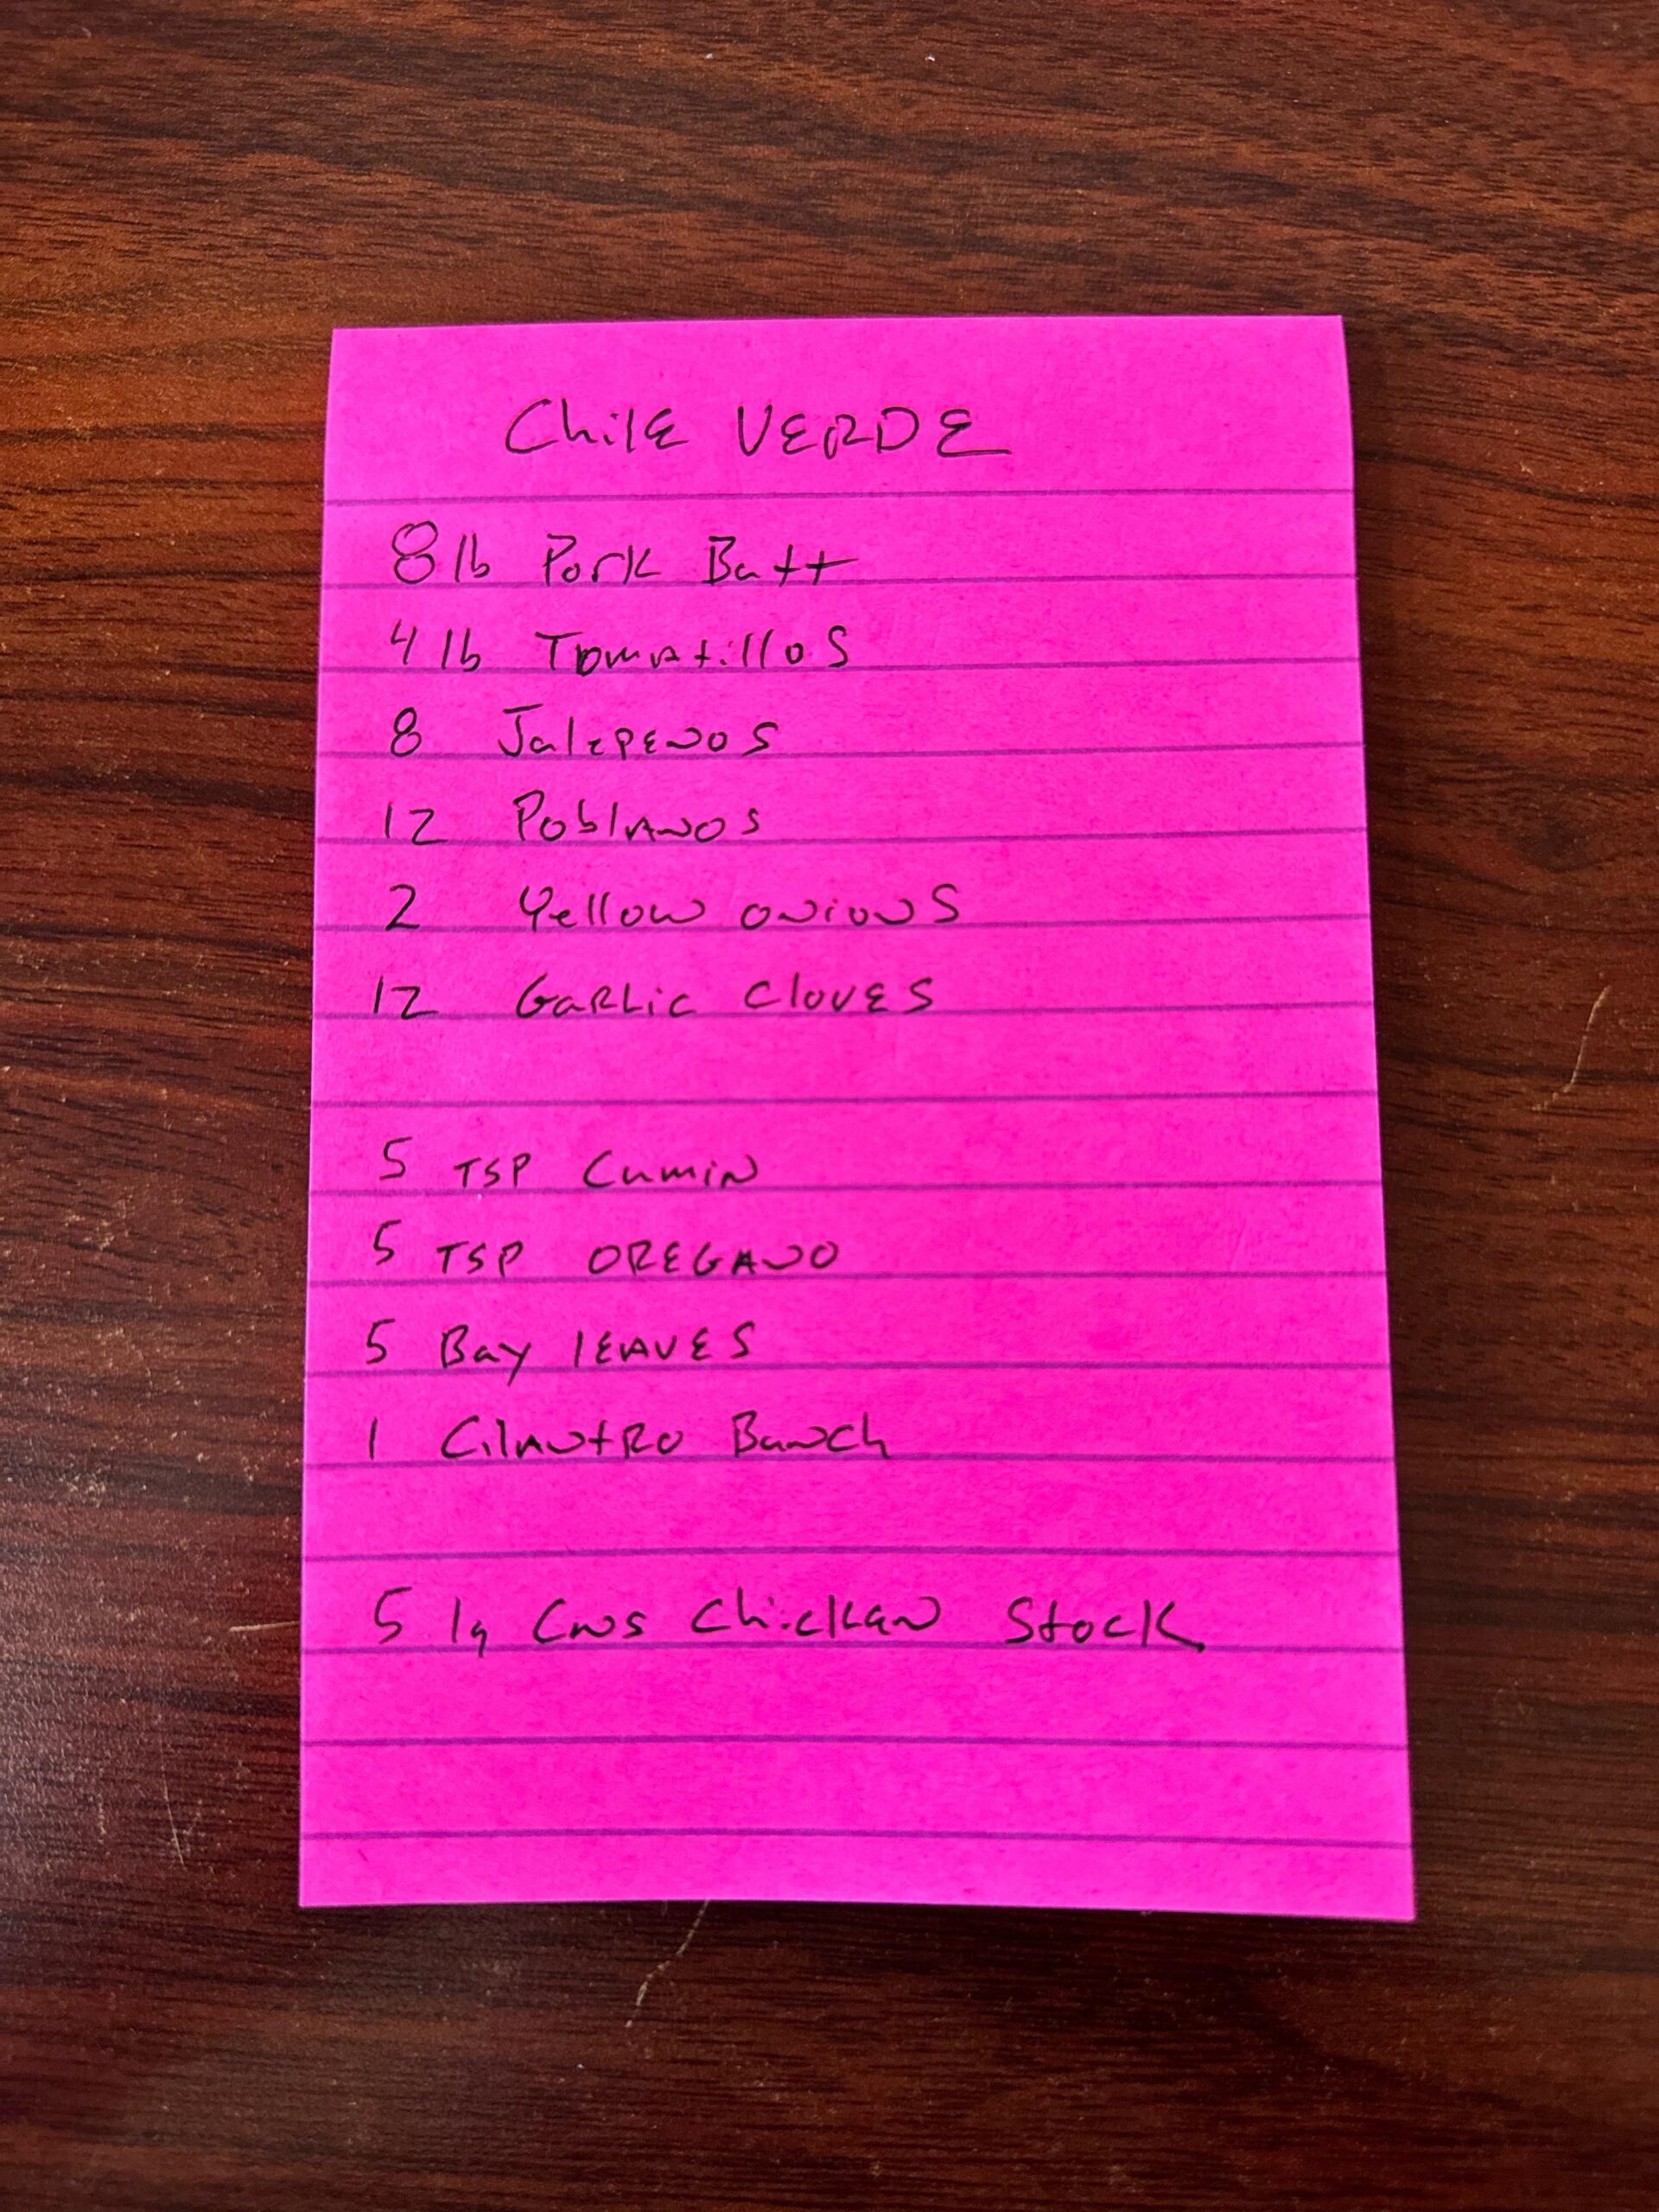 Chile VERDE
8 lb Pork Butt
4 lb Tomatillos
8 Jalepenos
12 Poblanos
2 Yellow onions
12 Garlic Cloves
5 TSP Cumin
5 TSP OREGANO
5 Bay lEAVES
1 Cilantro Bunch
5 lg Cns Chicken Stock